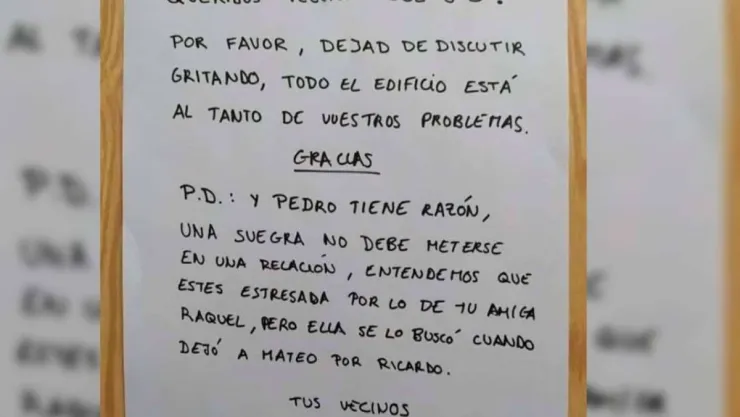 POR FAVOR, DEJAD DE DISCUTIR
GRITANDO, TODO EL EDIFICIO ESTÁ
AL TANTO DE VUESTROS PROBLEMAS.
GRACIAS
P.D.: Y PEDRO TIENE RAZÓN,
UNA SUEGRA NO DEBE METERSE
EN UNA RELACIÓN, ENTENDEMOS QUE
ESTES ESTRESADA POR LO DE TU AMIGA
RAQUEL, PERO ELLA SE LO BUSCÓ CUANDO
DEJÓ A MATEO POR RICARDO.
TUS VECINOS